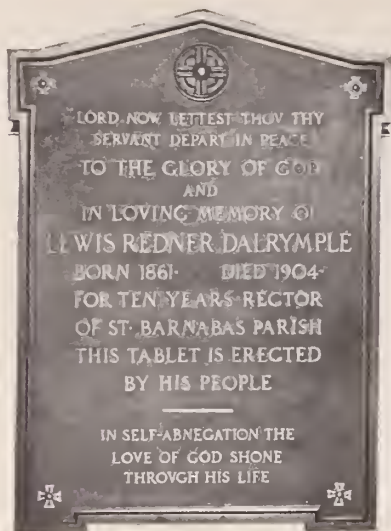 LORD NOW LETTEST THOV THY
SERVANT DEPART IN PEACE
TO THE GLORY OF GOD
AND
IN LOVING MEMORY OF
LEWIS REDNER DALRYMPLE
BORN 1861· DIED 1904·
FOR TEN YEARS RECTOR
OF ST· BARNABAS PARISH
THIS TABLET IS ERECTED
BY HIS PEOPLE
IN SELF-ABNEGATION THE
LOVE OF GOD SHONE
THROVGH HIS LIFE